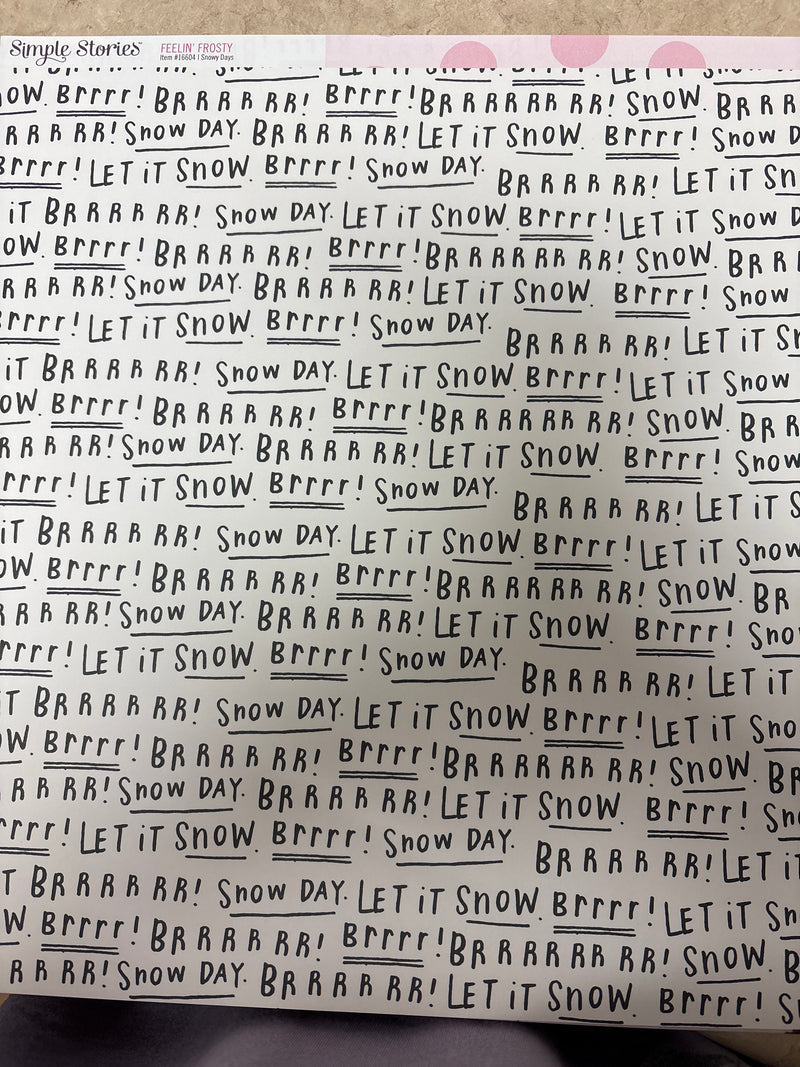 Simple Stories
FEELIN' FROSTY
Item #16604 | Snowy Days
OW. Brrrr! BR R R R RR! Brrrr! BR R R R RR RR! SnOW. BR R R
R R R RR! Snow DAY. BR R R R RR! LET iT SnOW. Brrrr! Snow D
Brrrr! LET iT SnOW. Brrrr! Snow DAY. BR R R R RR! LET iT Sn
iT BR R R R RR! Snow DAY. LET iT SnOW. Brrrr! LET iT Snow D
OW. Brrrr! BR R R R RR! Brrrr! BR R R R RR RR! SnOW. BR R
R R R RR! Snow DAY. BR R R R RR! LET iT SnOW. Brrrr! Snow
Brrrr! LET iT SnOW. Brrrr! Snow DAY. BR R R R RR! LET iT Sn
iT BR R R R RR! Snow DAY. LET iT SnOW. Brrrr! LET iT Snow
OW. Brrrr! BR R R R RR! Brrrr! BR R R R RR RR! SnOW. BR R
R R R RR! Snow DAY. BR R R R RR! LET iT SnOW. Brrrr! Snow
rrrr! LET iT SnOW. Brrrr! Snow DAY. BR R R R RR! LET iT S
iT BR R R R RR! Snow DAY. LET iT SnOW. Brrrr! LET iT Snow
OW. Brrrr! BR R R R RR! Brrrr! BR R R R RR RR! SnOW. BR
R R R RR! Snow DAY. BR R R R RR! LET iT SnOW. Brrrr! Sno
rrrr! LET iT SnOW. Brrrr! Snow DAY. BR R R R RR! LET iT
iT BR R R R RR! Snow DAY. LET iT SnOW. Brrrr! LET iT Sno
OW. Brrrr! BR R R R RR! Brrrr! BR R R R RR RR! SnOW. BR
R R RR! Snow DAY. BR R R R RR! LET iT SnOW. Brrrr! Sn
rrrr! LET iT SnOW. Brrrr! Snow DAY. BR R R R RR! LET iT
T BR R R R RR! Snow DAY. LET iT SnOW. Brrrr! LET iT Sn
W. Brrrr! BR R R R RR! Brrrr! BR R R R RR RR! SnOW. B
R R RR! Snow DAY. BR R R R RR! LET iT SnOW. Brrrr! S